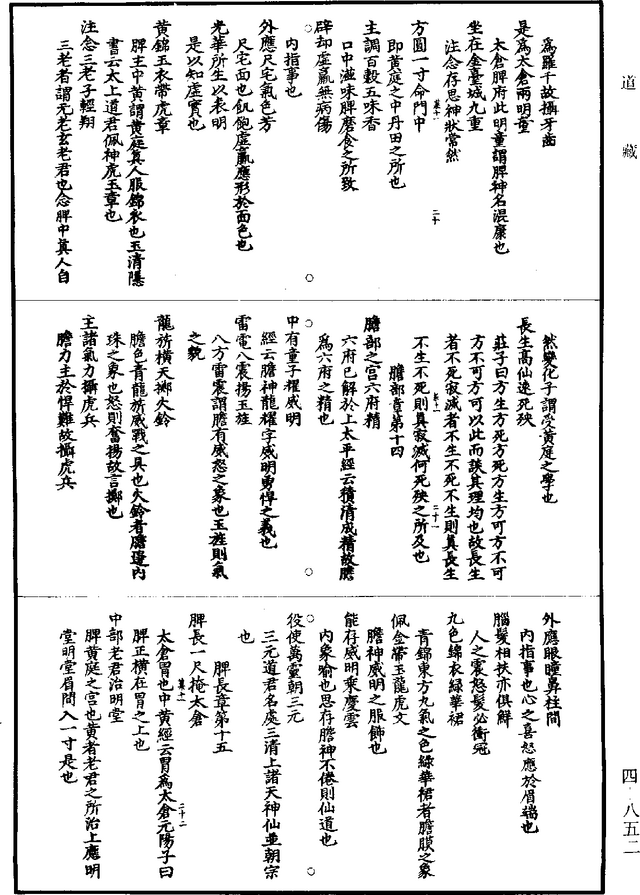 道藏
為羅千故攝牙齒
是為太倉兩明童
太倉脾府此明童謂脾神名混康也
坐在金臺城九重
注念存思神狀當然
方圓一寸命門中
二十
即黃庭之中丹田之所也
主調百穀五味香
口中滋味脾磨食之所致
辟却虛羸無病傷
內指事也
外應尺宅氣色芳
尺宅面也飢飽虛羸應形於面色也
光華所生以表明
是以知虛實也
黃錦玉衣帶虎章
脾主中黃謂黃庭真人服錦衣也玉清隱
書云太上道君佩神虎玉章也
注念三老子輕翔
三老者謂元老玄老君也念脾中真人自
然變化子謂受黃庭之學也
長生高仙遠死殃
莊子曰方生方死方死方生方可方不可
方不可方可以此而談其理均也故長生
者不死寂滅者不生不死不生則真長生
二十一
不生不死則真寂滅何死殃之所及也
膽部章第十四
膽部之宮六府精
六府已解於上太平經云積清成精故膽
為六府之精也
中有童子曜威明
經云膽神龍曜字威明勇悍之義也
雷電八震揚玉旌
八方雷震謂膽有威怒之象也玉旌則氣
之貌
龍旂橫天擲火鈴
膽色青龍旂威戰之具也火鈴者膽邊內
珠之象也怒則奮揚故言擲也
主諸氣力攝虎兵
膽力主於悍難故攝虎兵
外應眼瞳鼻柱間
內指事也心之喜怒應於眉端也
腦髮相扶亦俱鮮
人之震怒髮必衝冠
九色錦衣綠華裙
青錦東方九氣之色綠華裙者膽膜之象
佩金帶玉龍虎文
膽神威明之服飾也
能存威明乘慶雲
內象喻也思存膽神不倦則仙道也
役使萬靈朝三元
三元道君名處三清上諸天神仙並朝宗
也
脾長章第十五
脾長一尺掩太倉
二十二
太倉胃也中黃經云胃為太倉元陽子曰
脾正橫在胃之上也
中部老君治明堂
脾黃庭之宮也黃者老君之所治上應明
堂明堂眉間入一寸是也
四·八五二